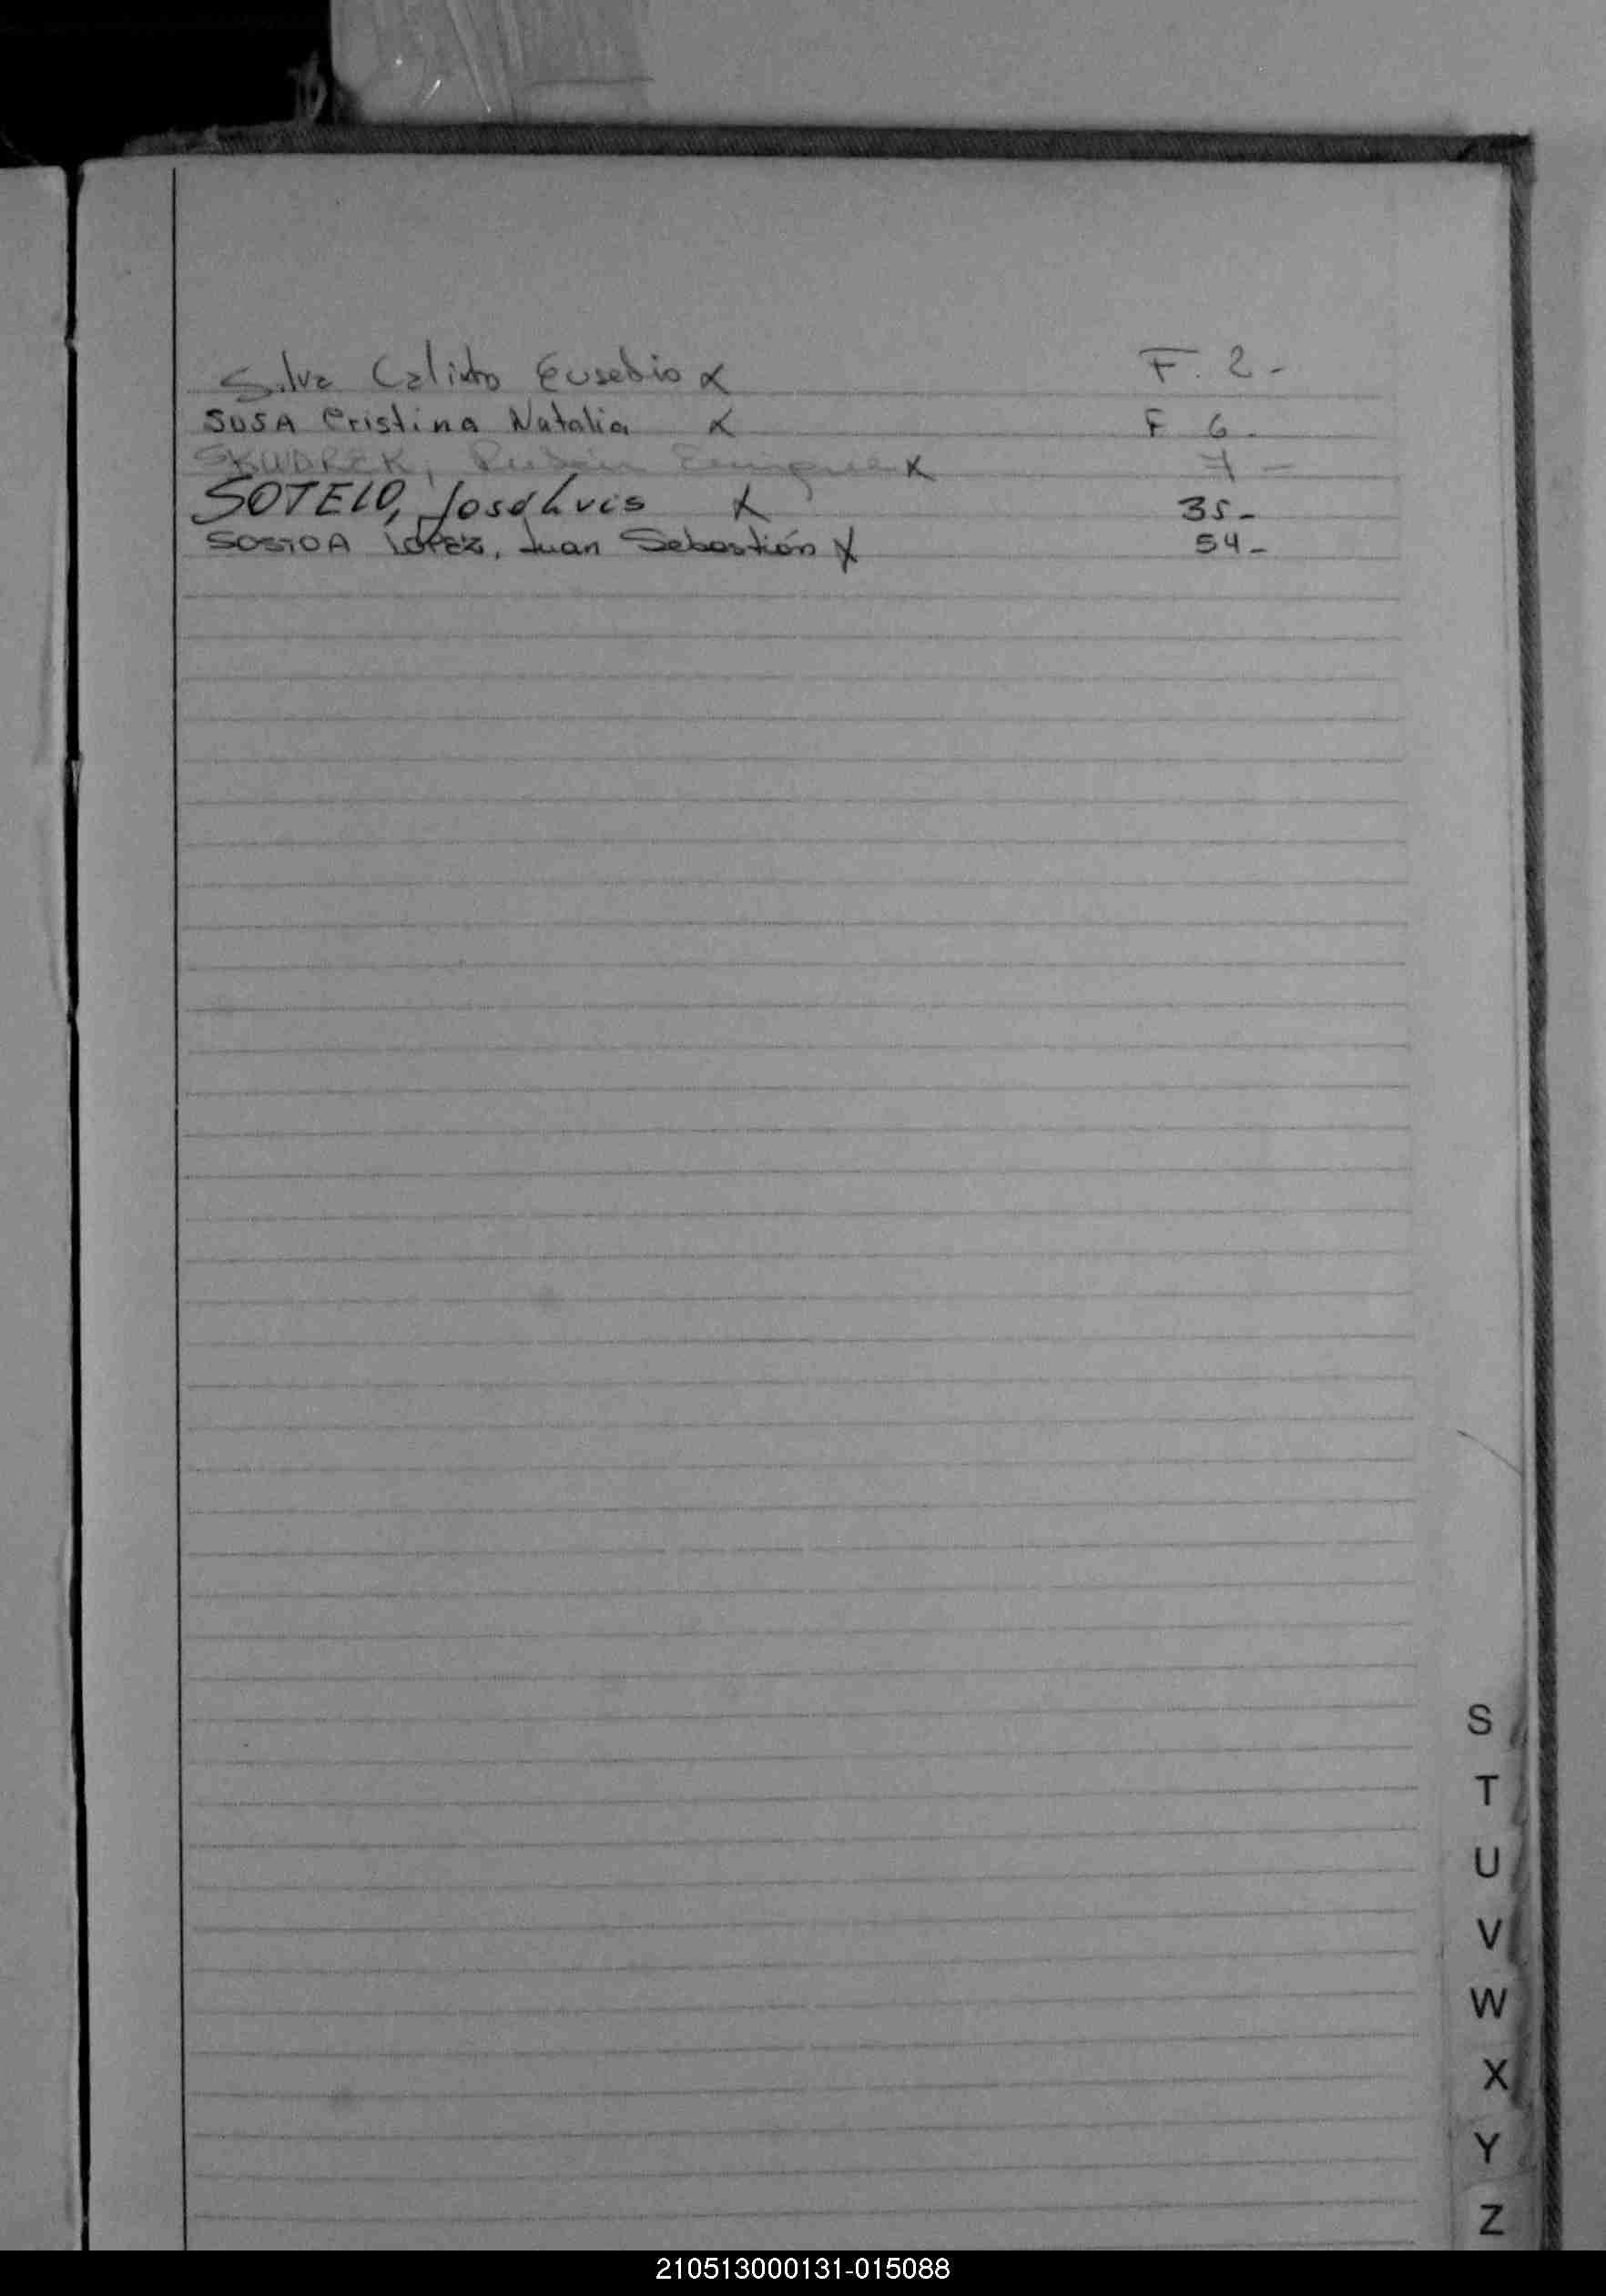 Silva Calixto Eusebio x F. 2-
SOSA Cristina Natalia x F 6-
SKUDREK, Rubén Enrique x 7-
SOTELO, José Luis x 35-
LOPEZ, Juan Sebastián x 54-
S
T
U
V
W
X
Y
Z
210513000131-015088